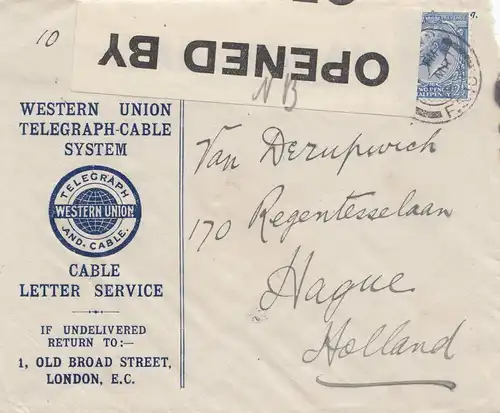 10
OPENED BY
N 13
WESTERN UNION
TELEGRAPH-CABLE
SYSTEM
TELEGRAPH
WESTERN UNION
AND CABLE.
CABLE
LETTER SERVICE
IF UNDELIVERED
RETURN TO:—
1, OLD BROAD STREET,
LONDON, E.C.
Van Derupwich
170 Regentesselaan
Hague
Holland